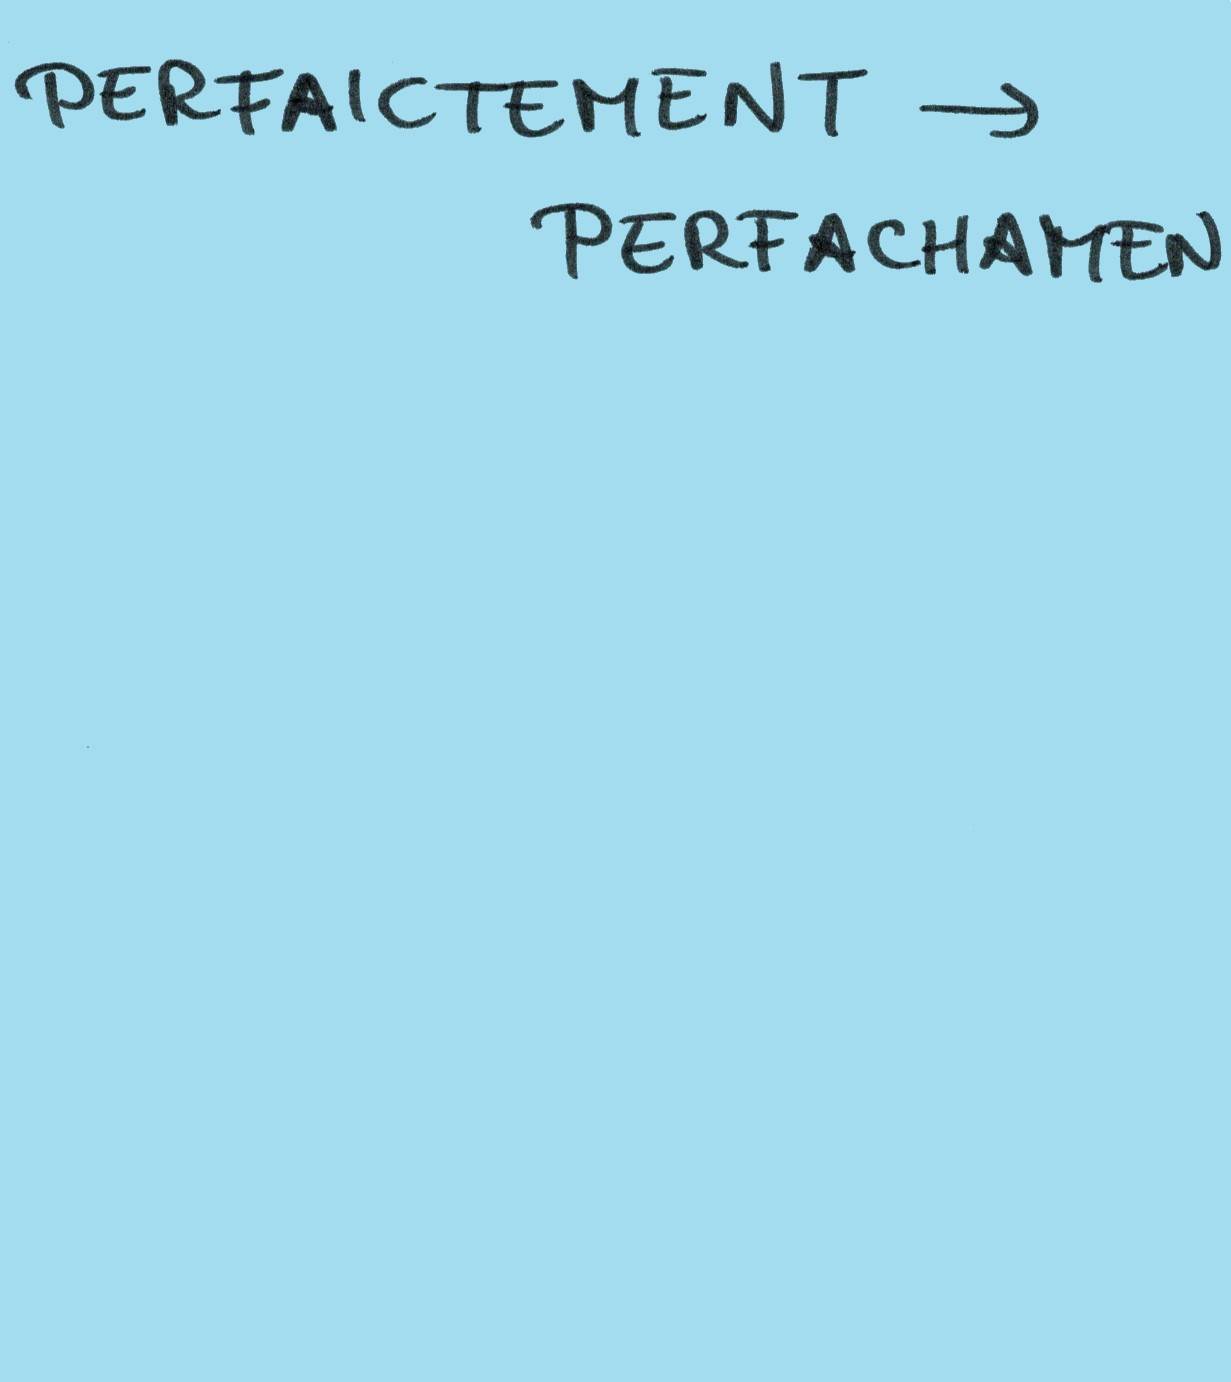 PERFAICTEMENT →
PERFACHAMEN